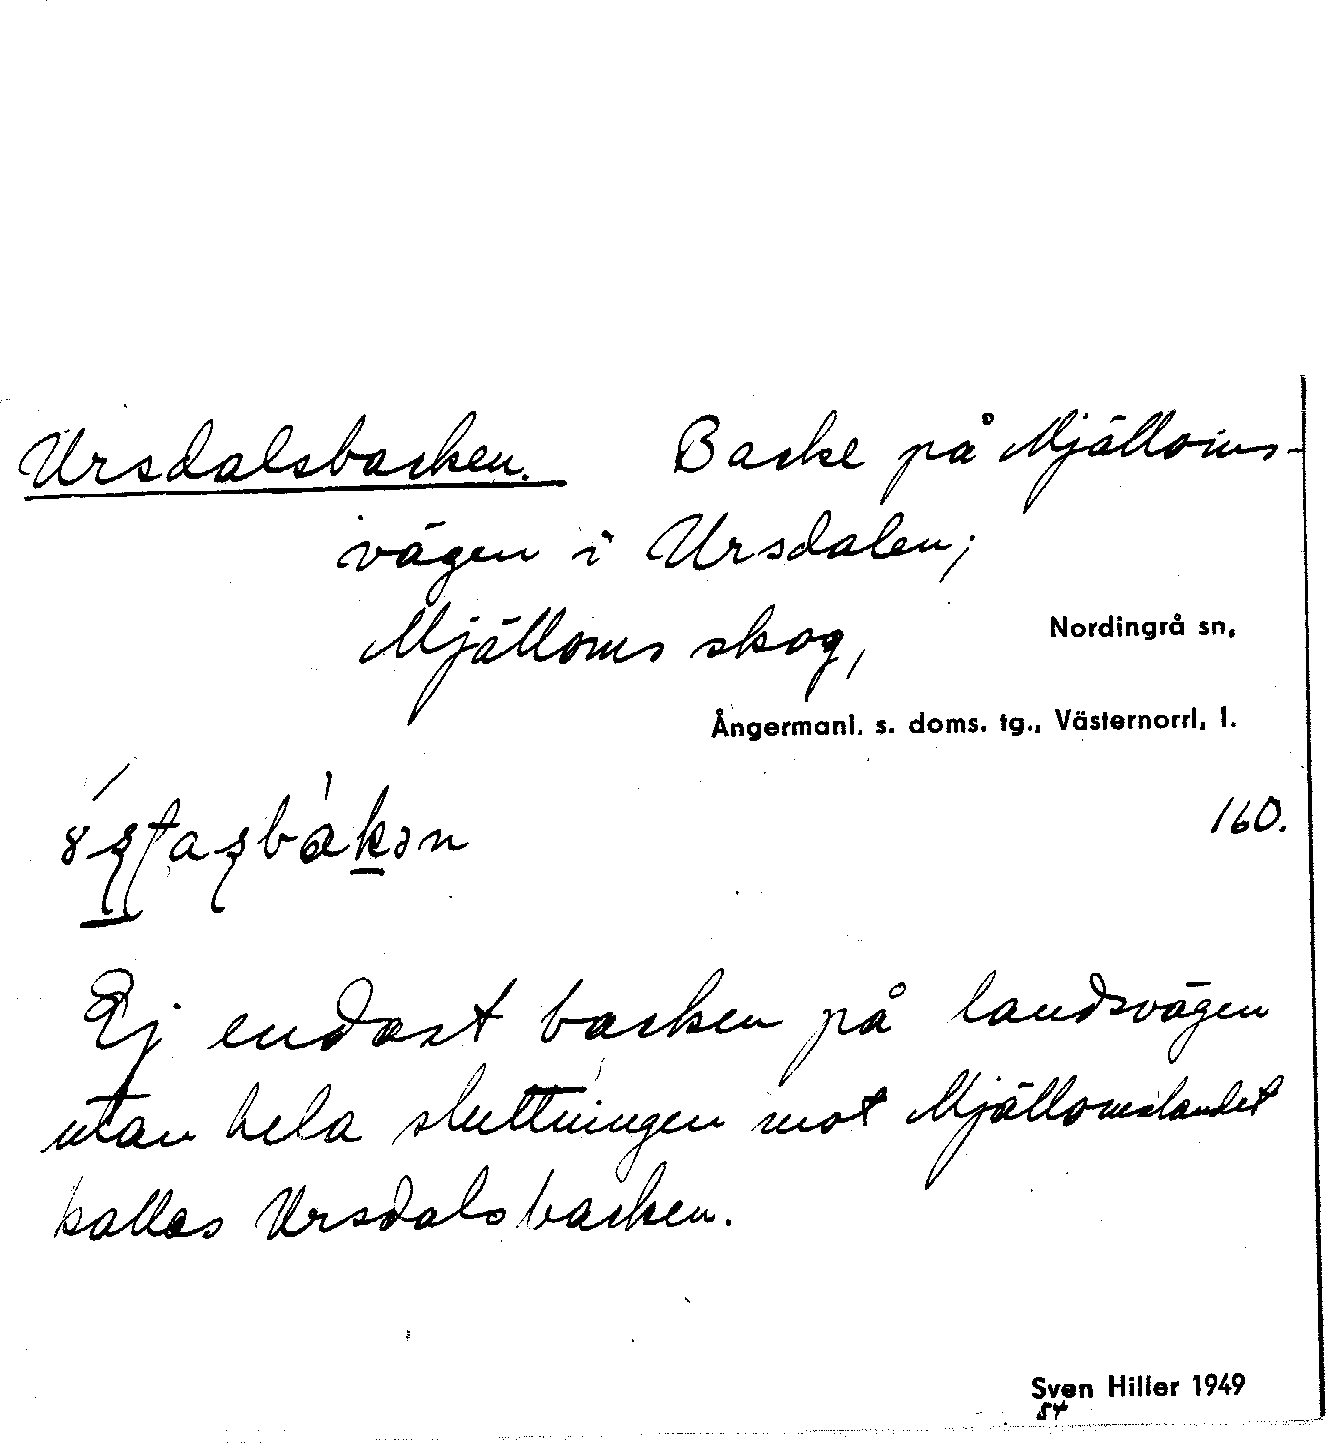 Ursdalsbacken. Backe på Mjälloms-
vägen i Ursdalen;
Mjälloms skog,
Nordingrå sn,
Ångermanl. s. doms. tg., Västernorrl. l.
160.
Ej endast backen på landsvägen
utan hela sluttningen mot Mjällomslandet
kallas Ursdalsbacken.
Sven Hiller 1949
54